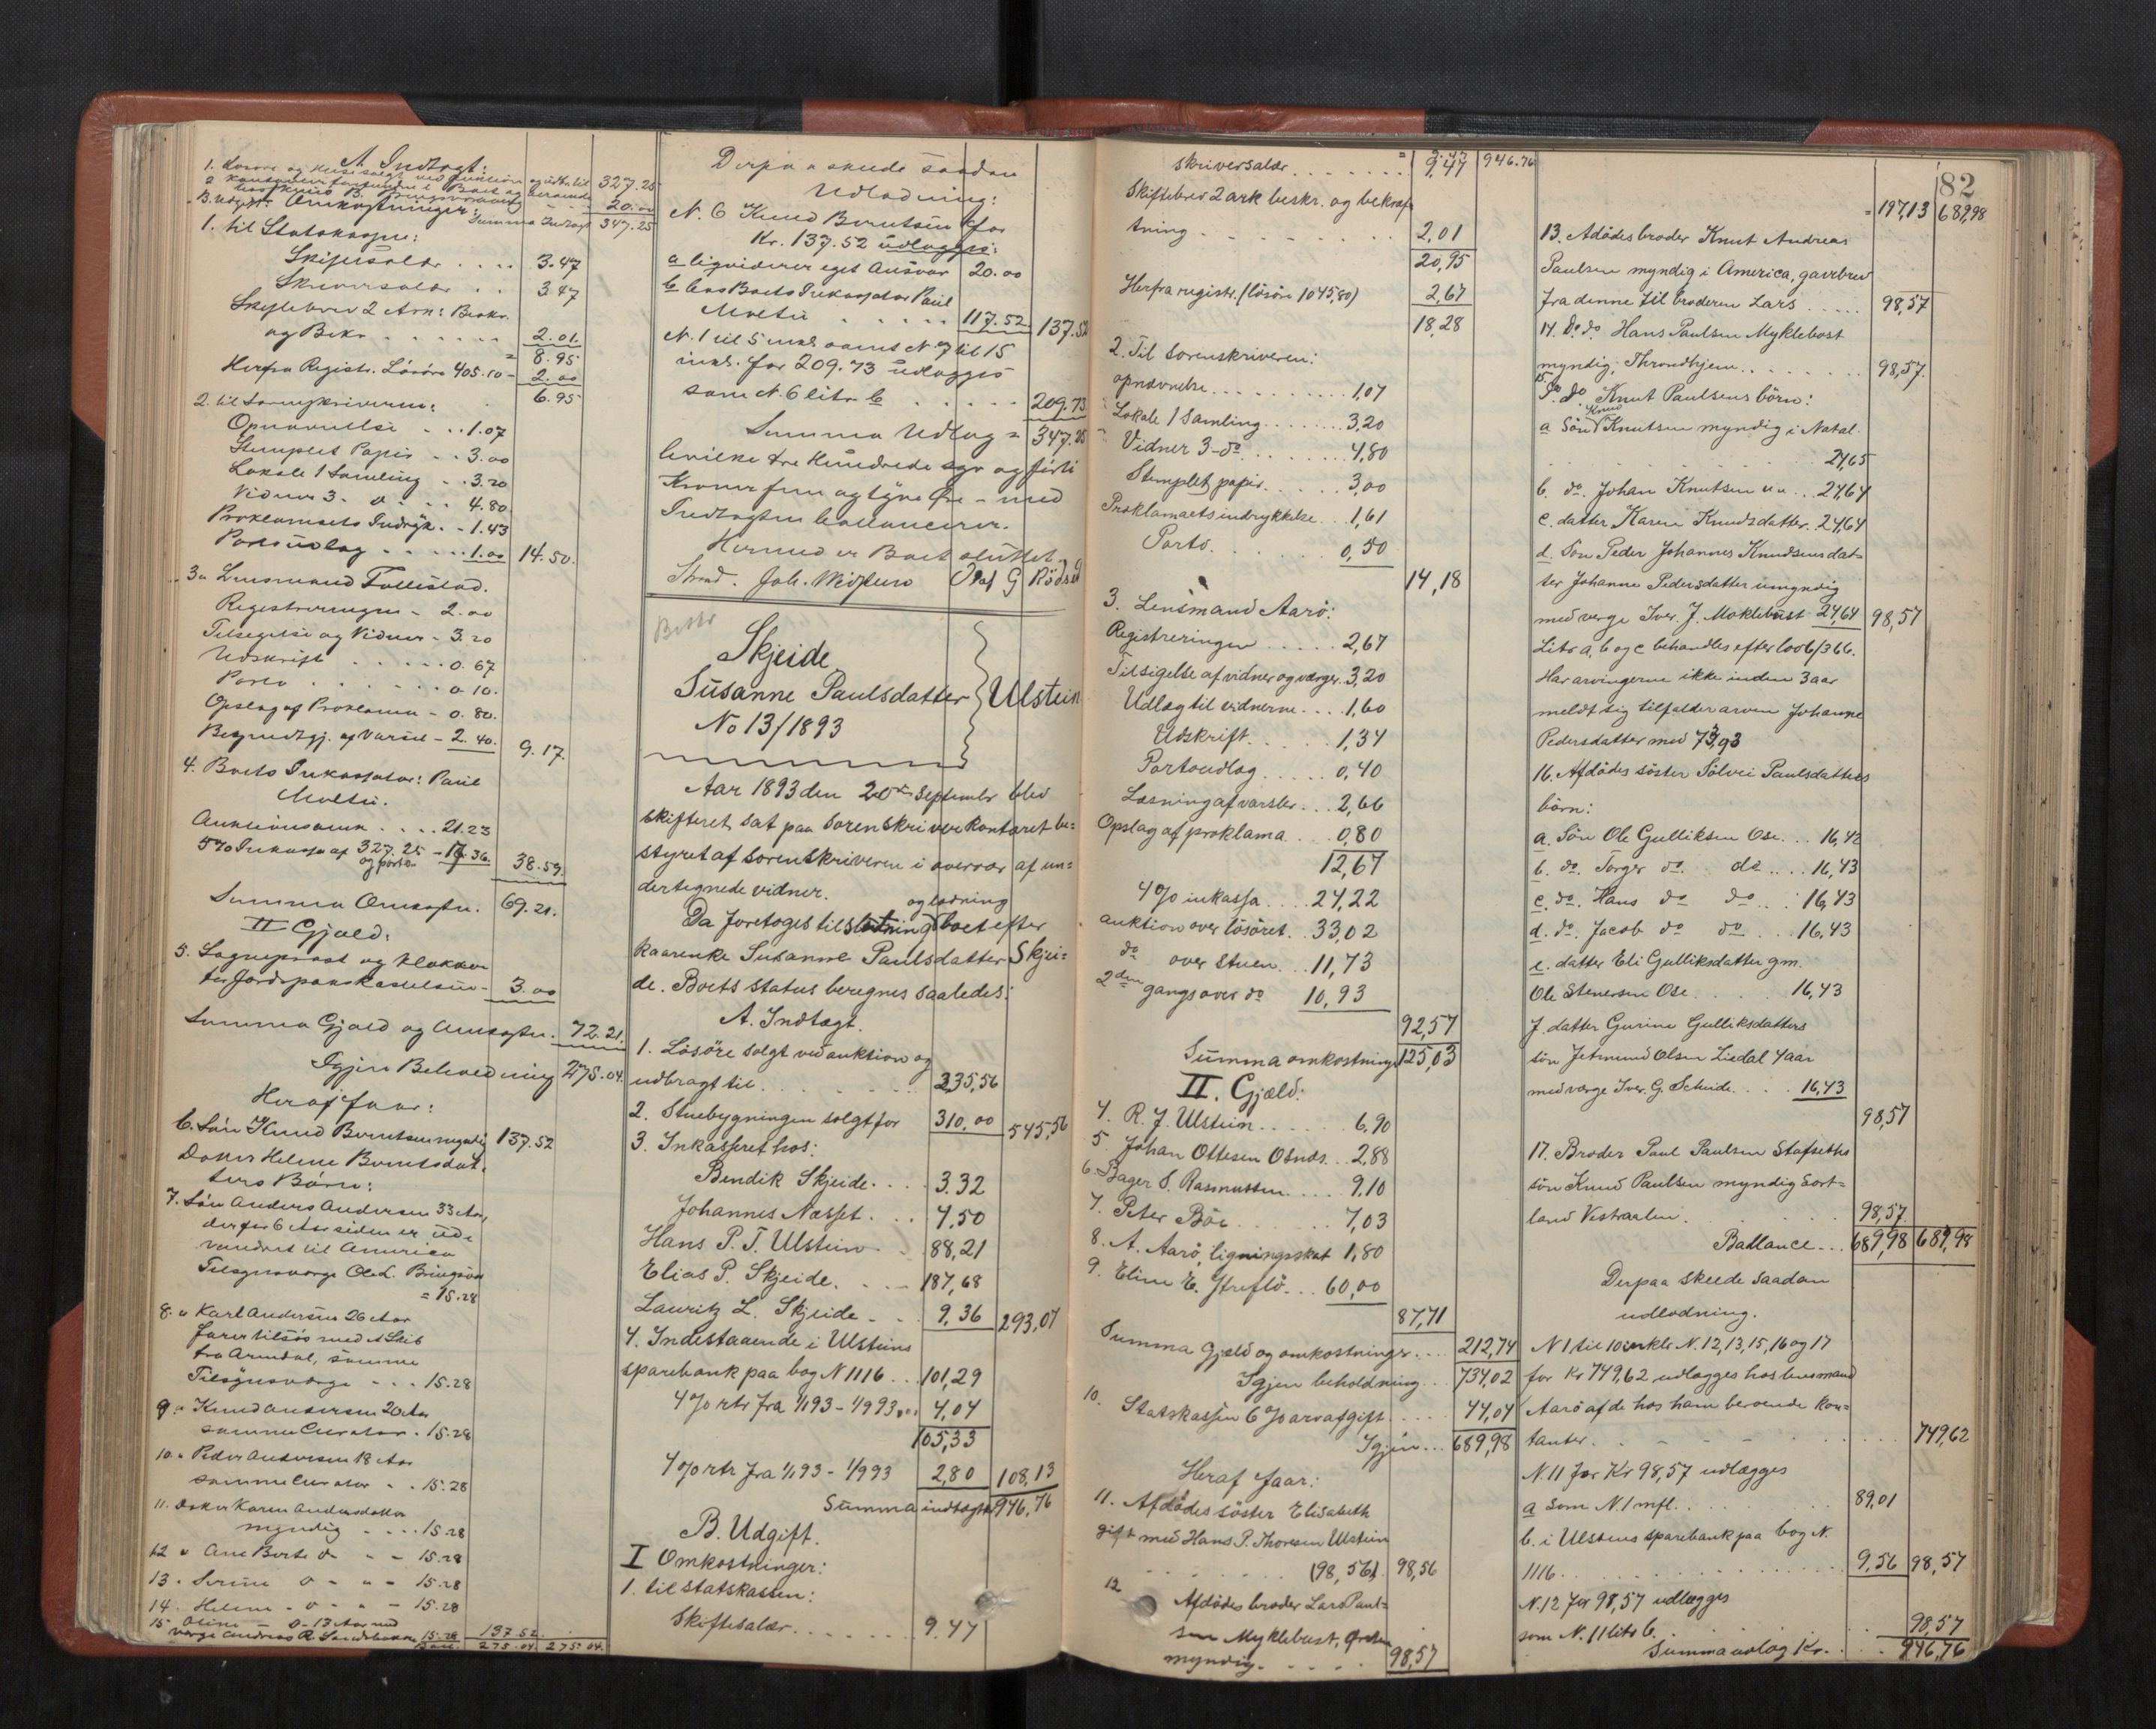 A. Indtægt:
327.25
20.00
B. Udgift. Omkostninger: Summa Indtægt 347.25
1. til Statskassen:
Skiftesalær . . . . 3.47
Skriversalær . . 3.47
Skiftebrev 2 Ark: Beskr.
og Bekr . . . . . . 2.01.
= 8.95
Herfra Registr. Lösöre 405.10 = 2.00
6.95
2. til Sorenskriveren:
Opnævnelse . . . 1.07
Stemplet Papir . . 3.00
Lokale 1 Samling . . 3.20
Vidner 3 - o . . . . 4.80
Proklamaets Indryk. . - 1.43
Portoudlag . . . . . 1.00 14.50.
3. Lensmand Tollestad.
Registreringen - 2.00
Tilsigelse og Vidner - 3.20
Udskrift . . . . . . 0.67
Porto . . . . . . . 0.10.
Opslag af Proklama - 0.80.
Bekjendtgj. af Varsel - 2.40. 9.17.
4. Boets Inkassator: Paul
Moltu.
Auktionsomk . . . . 21.23
5% Inkasso af 327.25 - 17.36. 38.59.
og porto
Summa Omkostn. 69.21.
II Gjæld:
5. Sogneprest og Klokker
for Jordspaakastelsen - 3.00
Summa Gjæld og Omkostn. 72.21.
Igjen Beholdning 275.04.
Heraf faar:
6. Sön Knud Berntsen myndig 137.52
Datter Helene Berntsdat-
ters Börn:
7. Sön Anders Andersen 33 Aar,
der for 6 Aar siden er ud-
vandret til America
Tilsynsværge Ole L. Bringsvor
= 15.28
8. " Karl Andersen 26 Aar
farer tilsös med et Skib
fra Arendal, samme
Tilsynsværge - . . 15.28
9. " Knud Andersen 20 Aar
samme Curator . 15.28
10. " Peder Andersen 18 Aar
samme Curator . . 15.28
11. Datter Karen Andersdatter
myndig . . . . 15.28
12 " Ane Berte o - - - 15.28
13. Serine o - " - 15.28
14. Helene - o - " - 15.28
15 Oline - o - 13 Aar med
værge Andreas R. Landsbakke 15.28 137.52.
Ball. 275.04. 275.04.
Derpaa skede saadan
Udlodning:
N. 6 Knud Berntsen for
Kr. 137.52 udlægges:
a ligviderer eget Ansvar 20.00
b hos Boets Inkassator Paul
Moltu . . . . . 117.52 137.52
N. 1 til 5 inkl. samt N. 7 til 15
inkl. for 209.73 udlægges
som N. 6 litr. b . . . . . 209.73
Summa Udlæg = 347.25
hvilke tre Hundrede syv og firti
Kroner fem og tyve Øre - med
Indtægten ballancerer.
Hermed er Boet sluttet
Strand. Joh. Olaf G Rödset
Skjeide
Susanne Paulsdatter } Ulstein
No 13/1893
Aar 1893 den 20de September blev
skifteret sat paa sorenskriverkontoret be-
styret af sorenskriveren i overvær af un-
dertegnede vidner.
og lodning
Da foretoges til slutning boet efter
kaarenke Susanne Paulsdatter Skjei-
de. Boets status beregnes saaledes:
A. Indtægt.
1. Lösöre solgt ved auktion og
udbragt til . . . . . . . . 235,56
2. Stuebygningen solgt for 310,00 545,56
3. Inkasseret hos:
Bendik Skjeide . . . . 3.32
Johannes Næsset . . . 4,50
Hans P. T. Ulstein . . 88,21
Elias P. Skjeide . . . 187,68
Lauritz L. Skjeide - . . 9,36 293,07
4. Indestaaende i Ulsteins
sparebank paa bog N 1116 . . 101,29
4% rtr fra 1/1 93 - 1/9 93 . . . 4,04
105,33
4% rtr fra 1/1 93 - 1/9 93 2,80 108,13
Summa indtægt 946,76
B. Udgift.
I Omkostninger:
1. til statskassen:
Skiftesalær . . . . . . . 9.47
skriversalær . . . . . . . = 9,47 946.76
Skiftebrev 2 ark beskr. og bekræf-
tning . . . . . . . . 2,01
20,95
Herfra registr. (lösöre 1045,80) 2,67
18,28
2. Til sorenskriveren:
opnævnelse . . . . . . . . 1,07
Lokale 1 samling . . . . . 3,20
Vidner 3 - do . . . . . . . 4,80
Stemplet papir . . . . . 3,00
Proklamaets indrykkelse . . 1,61
Porto . . . . . . . 0,50
14,18
3. Lensmand Aarö:
Registreringen . . . . . 2,67
Tilsigelse af vidner og værger. 3,20
Udlæg til vidnerne . . . 1,60
Udskrift . . . . . 1,34
Portoudlæg . . . . . 0,40
Læsning af varsler . . . 2,66
Opslag af proklama . . . 0,80
12,67
4% inkasso . . . . 24,22
auktion over lösöret . . 33,02
do over stuen . . . 11,73
2den gangs over do 10,93
92,57
Summa omkostninger 125,03
II. Gjæld:
4. R. J. Ulstein . . . . . . 6.90
5 Johan Ottesen Osnes . . 2,88
6. Bager S. Rasmussen . . . . . 9.10
7. Peter Böe . . . . . . 7,03
8. A. Aarö, ligningsskat 1,80
9. Eline E. Streflö . . . 60,00
87,71
Summa Gjæld og omkostninger . . . . 212,74
Igjen beholdning . . 734,02
10. Statskassen 6% arvafgift . . . . 44,04
Igjen . . . 689,98
Heraf faar:
11. Afdödes söster Elisabeth
gift med Hans P. Thoresen Ulstein
. . . . . . . . (98,56) 98,56
12 Afdödes broder Lars Paul-
sen Myklebust, Örsten
myndig . . . . . . 98,57
82
= 197,13 689,98
13. Adödes broder Knut Andreas
Paulsen myndig i America, gavebrev
fra denne til broderen Lars . . . . . 98,57
14. do do Hans Paulsen Myklebost
myndig, Throndhjem . . . . . . . 98,57.
15 do do Knut Paulsens börn:
Knud
a Sön Knutsen myndig i Natal.
. . . . . . . . 24,65
b. do. Johan Knutsen u. . . 24,64
c. datter Karen Knudsdatter. 24,64
d. Sön Peder Johannes Knudsens dat-
ter Johanne Pedersdatter umyndig
med værge Iver J. Moklebust 24,64 98,57
Litr a, b og c behandles efter lov 6/3 66.
Har arvingerne ikke inden 3 aar
meldt sig tilfalder arven Johanne
Pedersdatter med 73,93
16. Afdödes söster Sölvei Paulsdatters
börn:
a. Sön Ole Gulliksen Ose . . . 16,42
b. do. Torger do. do . . . . 16,43
c. do. Hans do do . . . . 16,43
d. do. Jacob do do . . . . 16,43
e. datter Eli Gulliksdatter gm.
Ole Stenersen Ose . . . . . 16,43
f. datter Gurine Gulliksdatters
sön Jetmund Olsen Liedal 4 aar
med værge Iver. G. Scheide . . . . 16,43
98,57
17. Broder Paul Paulsen Stafseths
sön Knud Paulsen myndig Sort-
land Vestraalen . . . . . . . 98,57
Ballance . . . 689,98 689,98
Derpaa skede saadan
udlodning.
N 1 til 10 inkl N. 12, 13, 15, 16 og 17
for Kr 749,62 udlægges hos lensmand
Aarö af de hos ham beroende kon-
tanter . . . . . . . . . . 749,62
N. 11 for Kr 98,57 udlægges
a som N. 1 mfl. . . . . . . . 89,01
b. i Ulsteins sparebank paa bog N.
1116 . . . . . . . . . . . 9,56 98,57
N. 12 for 98,57 udlægges
som N. 11 litr b. . . . . . . . 98,57
Summa udlæg Kr. . . . 946,76